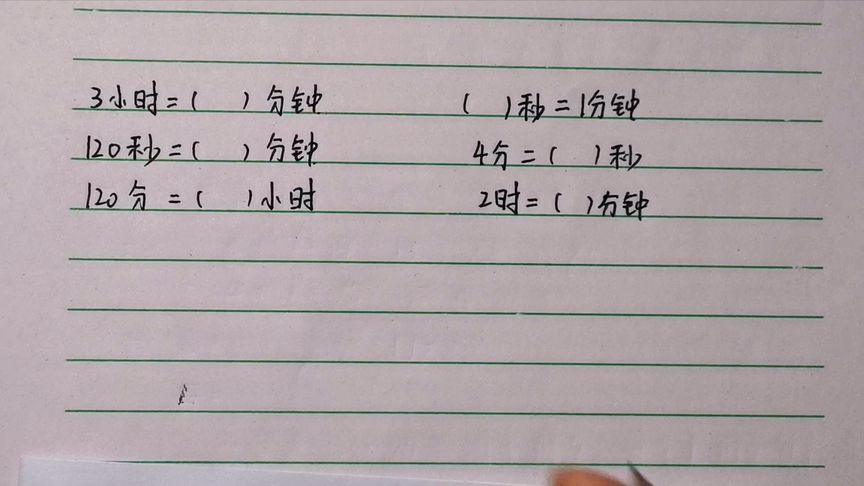 3小时=(  )分钟 (  )秒=1分钟
120秒=(  )分钟 4分=(  )秒
120分=(  )小时 2时=(  )分钟